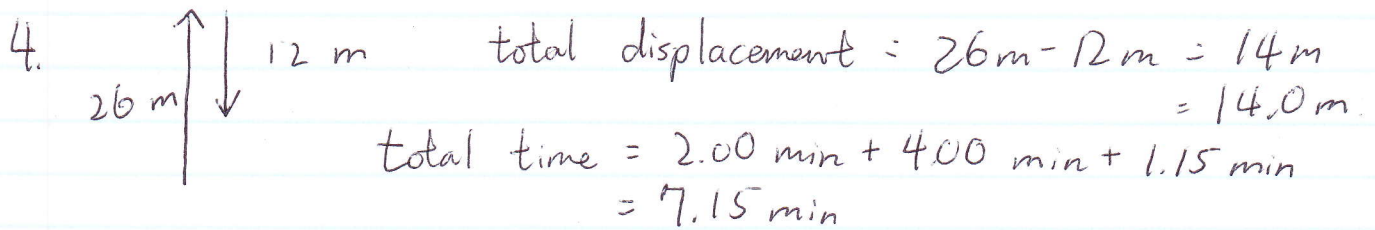 4.
12 m
total displacement = 26m - 12m = 14m
26 m
= 14.0m.
total time = 2.00 min + 4.00 min + 1.15 min
= 7.15 min